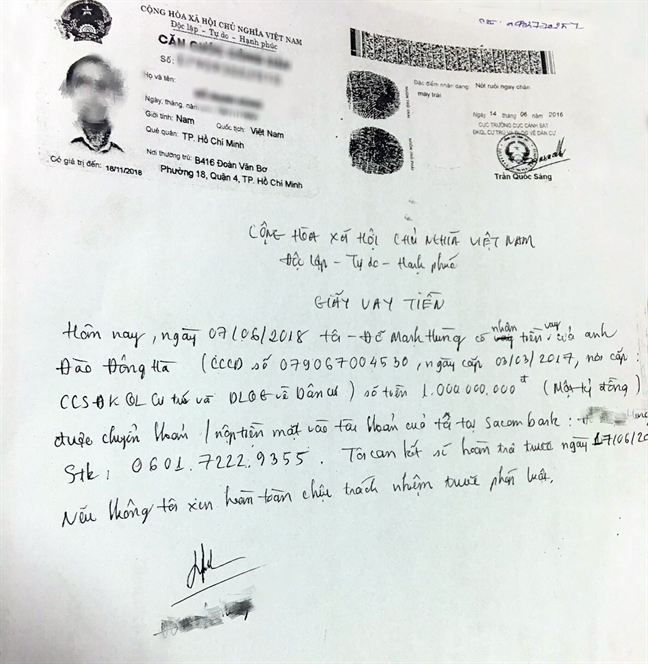 CỘNG HÒA XÃ HỘI CHỦ NGHĨA VIỆT NAM
Độc lập - Tự do - Hạnh phúc
CĂN
Số:
Họ và tên:
Ngày, tháng, năm
Giới tính: Nam Quốc tịch: Việt Nam
Quê quán: TP. Hồ Chí Minh
Nơi thường trú: B416 Đoàn Văn Bơ
Phường 18, Quận 4, TP. Hồ Chí Minh
Có giá trị đến: 18/11/2018
Đặc điểm nhận dạng: Nốt ruồi ngay chân
mày trái
Ngày 14 tháng 06 năm 2016
CỤC TRƯỞNG CỤC CẢNH SÁT
ĐKQL CƯ TRÚ VÀ DLQG VỀ DÂN CƯ
Trần Quốc Sáng
CỘNG HÒA XÃ HỘI CHỦ NGHĨA VIỆT NAM
Độc lập - Tự do - Hạnh phúc
GIẤY VAY TIỀN
Hôm nay, ngày 07/06/2018 tôi - Đỗ Mạnh Hùng có nhận tiền vay của anh
Đào Đông Hà (CCCD số 079067004530, ngày cấp 03/03/2017, nơi cấp:
CCSĐKQL Cư trú và DLQG về Dân cư) số tiền 1.000.000.000đ (Một tỷ đồng)
được chuyển khoản / nộp tiền mặt vào tài khoản của tôi tại Sacombank:
Stk: 0601.7222.9355. Tôi cam kết sẽ hoàn trả trước ngày 17/06/20
Nếu không tôi xin hoàn toàn chịu trách nhiệm trước pháp luật.